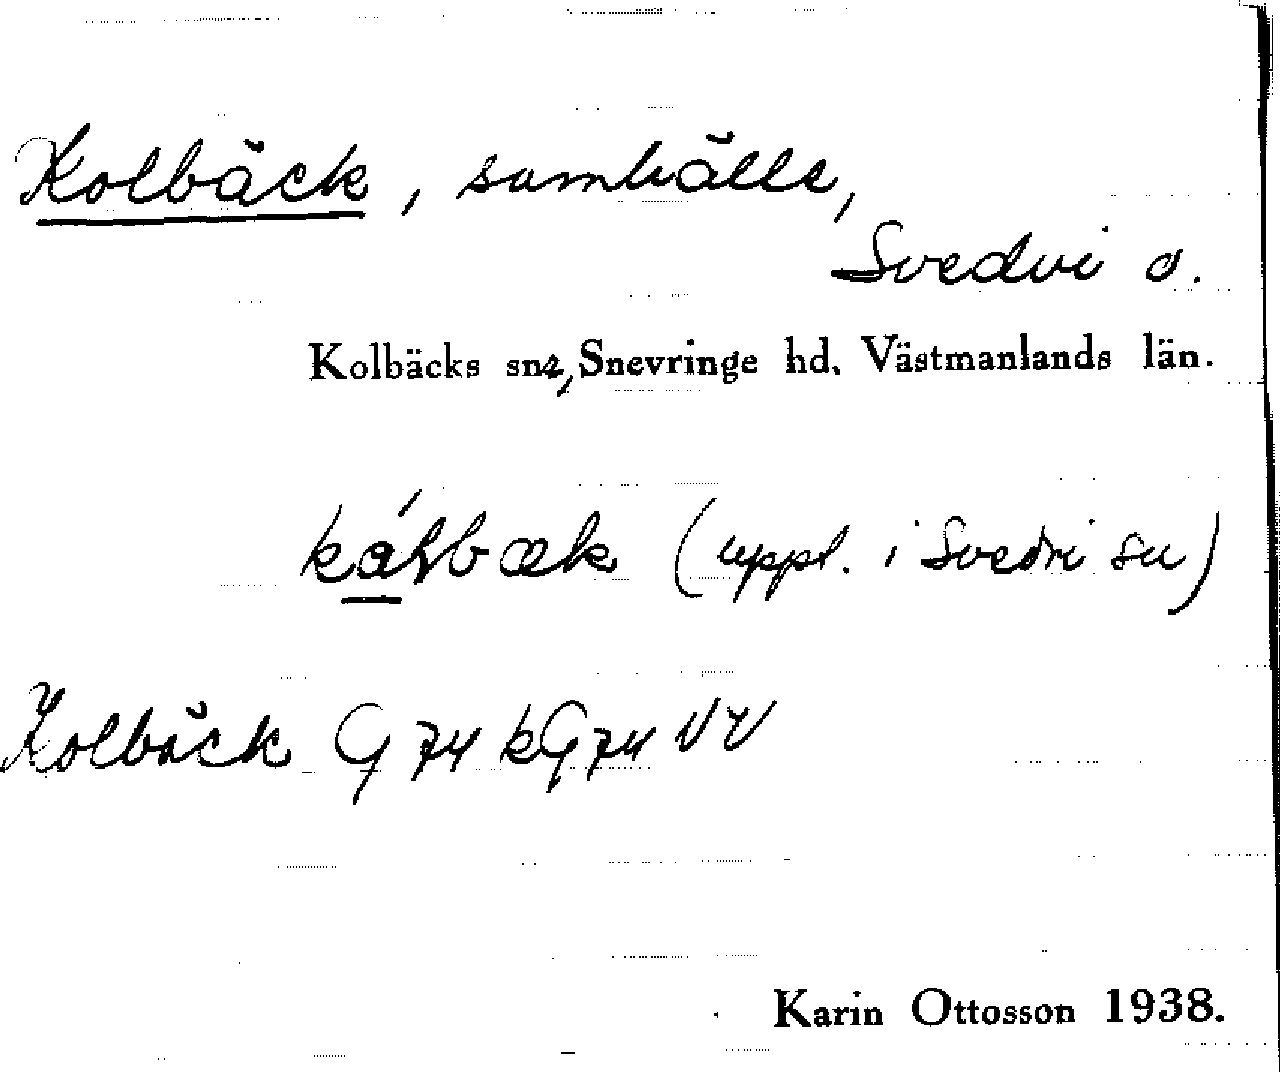 Kolbäck, samhälle,
Svedvi o.
Kolbäcks snr, Snevringe hd. Västmanlands län.
(uppt. i Svedvi sn)
Kolbäck G 74 kG 74 VV
Karin Ottosson 1938.